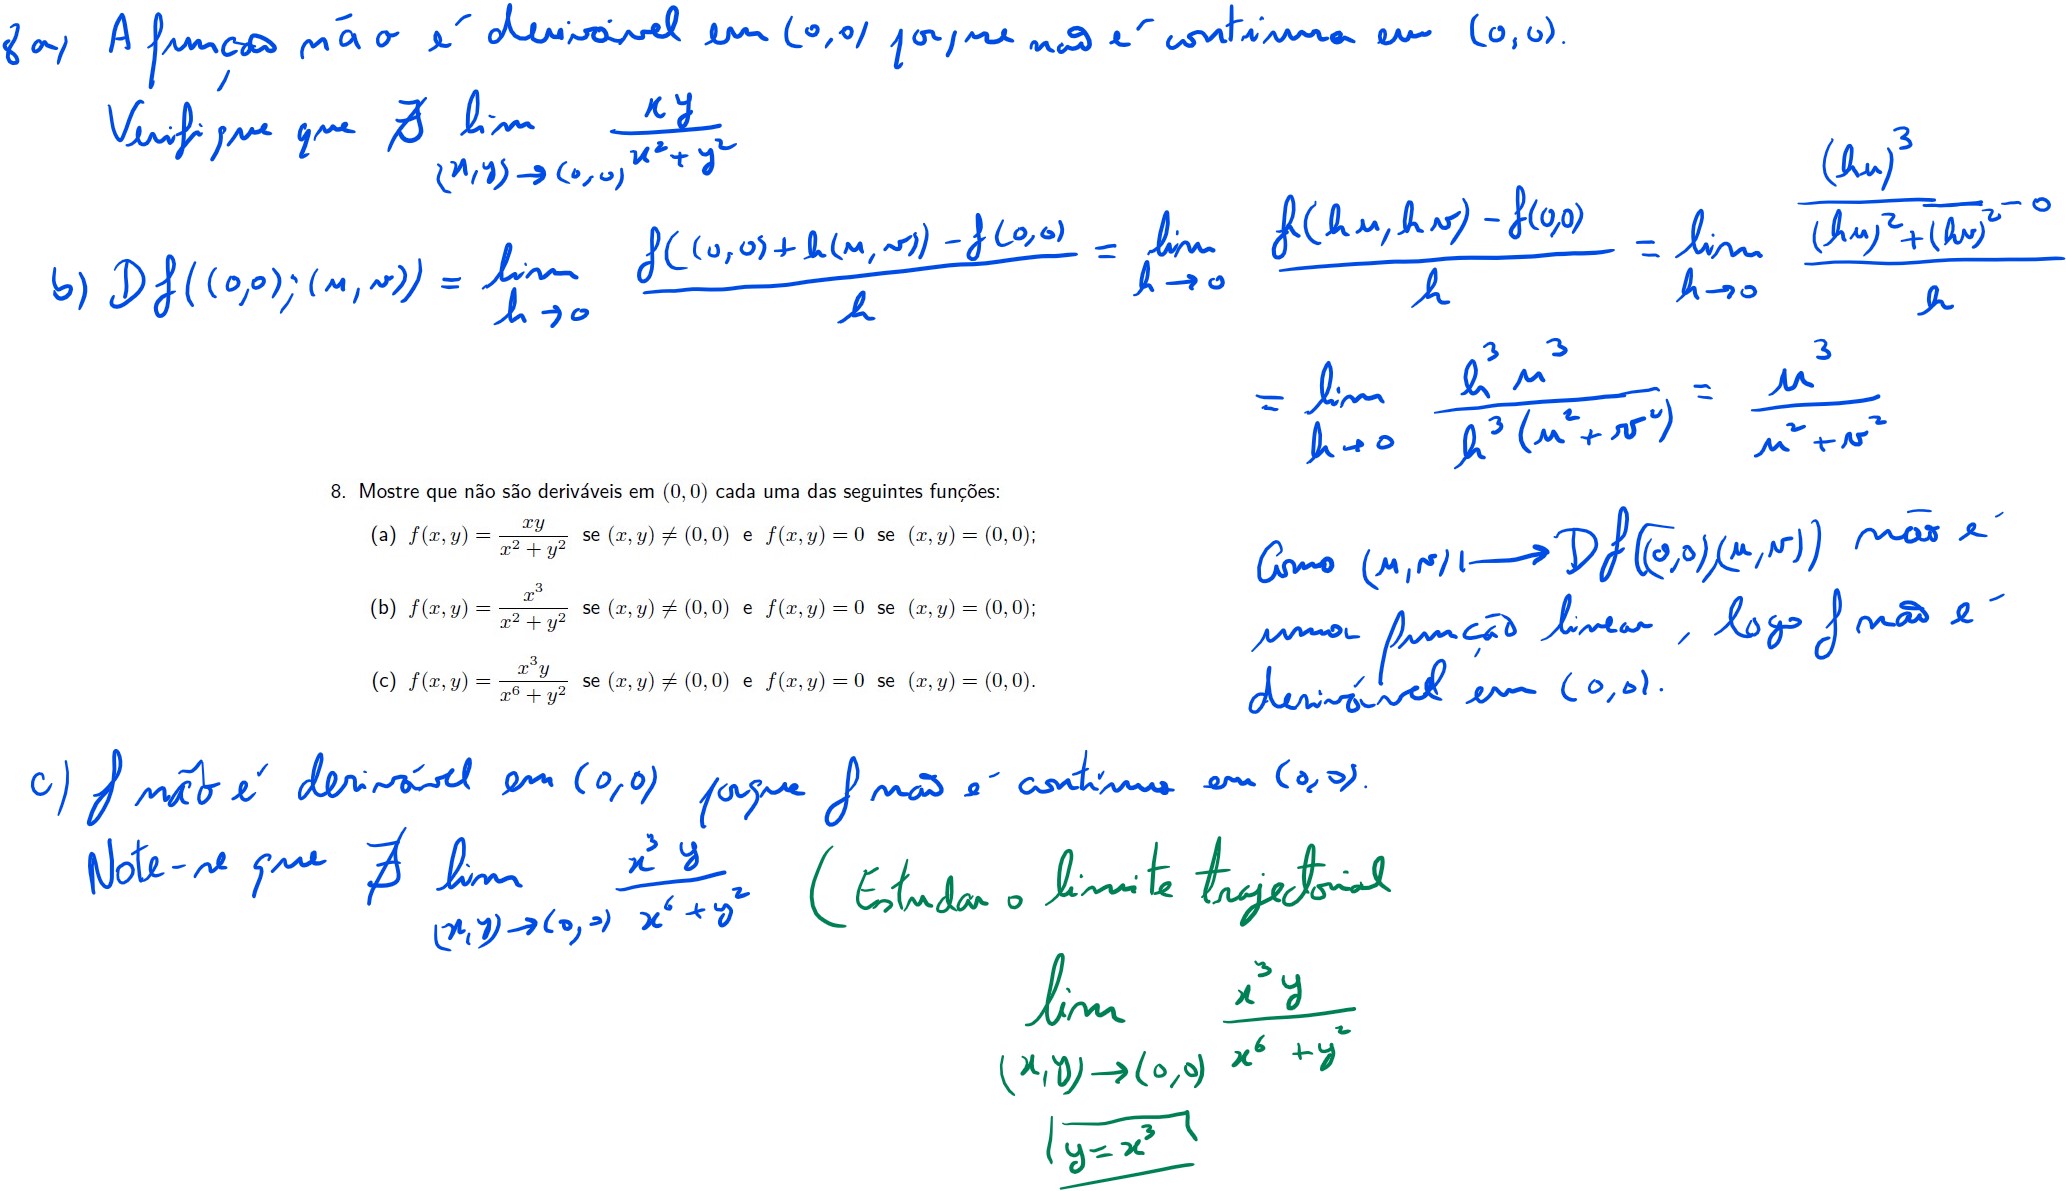 8 a) A função não é derivável em (0,0) porque não é contínua em (0,0).
Verifique que ∄ lim_{(x,y)→(0,0)} xy/(x²+y²)
b) Df((0,0);(u,v)) = lim_{h→0} (f((0,0)+h(u,v)) - f(0,0))/h = lim_{h→0} (f(hu,hv) - f(0,0))/h = lim_{h→0} ((hu)³/((hu)²+(hv)²) - 0)/h
= lim_{h→0} h³u³/(h³(u²+v²)) = u³/(u²+v²)
8. Mostre que não são deriváveis em (0,0) cada uma das seguintes funções:
(a) f(x,y) = xy/(x²+y²) se (x,y) ≠ (0,0) e f(x,y) = 0 se (x,y) = (0,0);
(b) f(x,y) = x³/(x²+y²) se (x,y) ≠ (0,0) e f(x,y) = 0 se (x,y) = (0,0);
(c) f(x,y) = x³y/(x⁶+y²) se (x,y) ≠ (0,0) e f(x,y) = 0 se (x,y) = (0,0).
Como (u,v) ↦ Df((0,0),(u,v)) não é
uma função linear, logo f não é
derivável em (0,0).
c) f não é derivável em (0,0) porque f não é contínua em (0,0).
Note-se que ∄ lim_{(x,y)→(0,0)} x³y/(x⁶+y²) (Estudar o limite trajectorial
lim_{(x,y)→(0,0)} x³y/(x⁶+y²)
y=x³